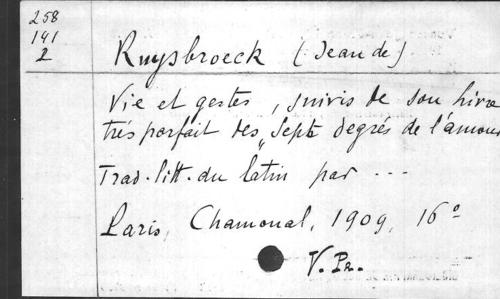 258
141
2
Ruysbroeck (Jean de)
Vie et gestes, suivis de son livre
très parfait des „Sept degrés de l'amour
Trad. litt. du latin par ...
Paris, Chamonal, 1909, 16°
V. Pr.